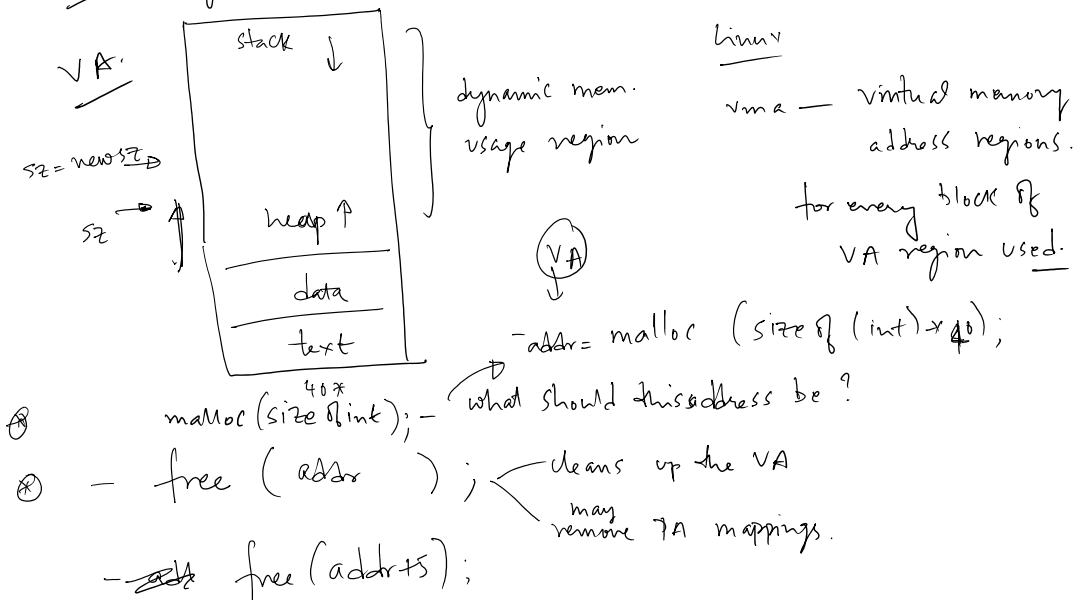 stack
VA.
sz = newsz
sz
heap ↑
data
text
dynamic mem.
usage region
Linux
vma — virtual memory
address regions.
for every block of
VA region used.
VA
- addr = malloc (sizeof (int) * 40);
40 *
malloc (sizeof int); - what should this address be ?
- free ( addr ) ;
cleans up the VA
may
remove PA mappings.
- free (addr+5);